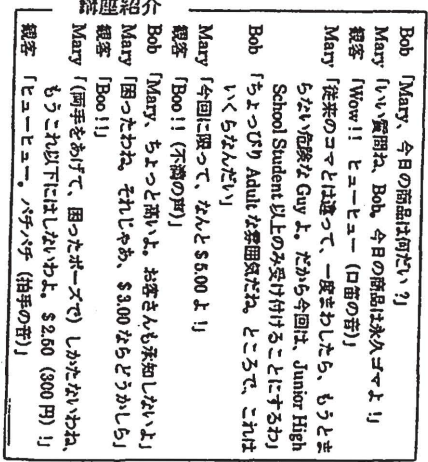 講座紹介
Bob 「Mary、今日の商品は何だい?」
Mary 「いい質問ね、Bob。今日の商品は永久ゴマよ!」
観客 「Wow!! ヒューヒュー (口笛の音)」
Mary 「従来のコマとは違って、一度まわしたら、もうとま
らない危険な Guy よ。だから今回は、Junior High
School Student 以上のみ受け付けることにするわ」
Bob 「ちょっぴり Adult な雰囲気だね。ところで、これは
いくらなんだい」
Mary 「今回に限って、なんと $5.00 よ!」
観客 「Boo!! (不満の声)」
Bob 「Mary、ちょっと高いよ。お客さんも承知しないよ」
Mary 「困ったわね。それじゃあ、$3.00 ならどうかしら」
観客 「Boo!!」
Mary 「(両手をあげて、困ったポーズで) しかたないわね、
もうこれ以下にはしないわよ。$2.50 (300円)!」
観客 「ヒューヒュー。パチパチ (拍手の音)」